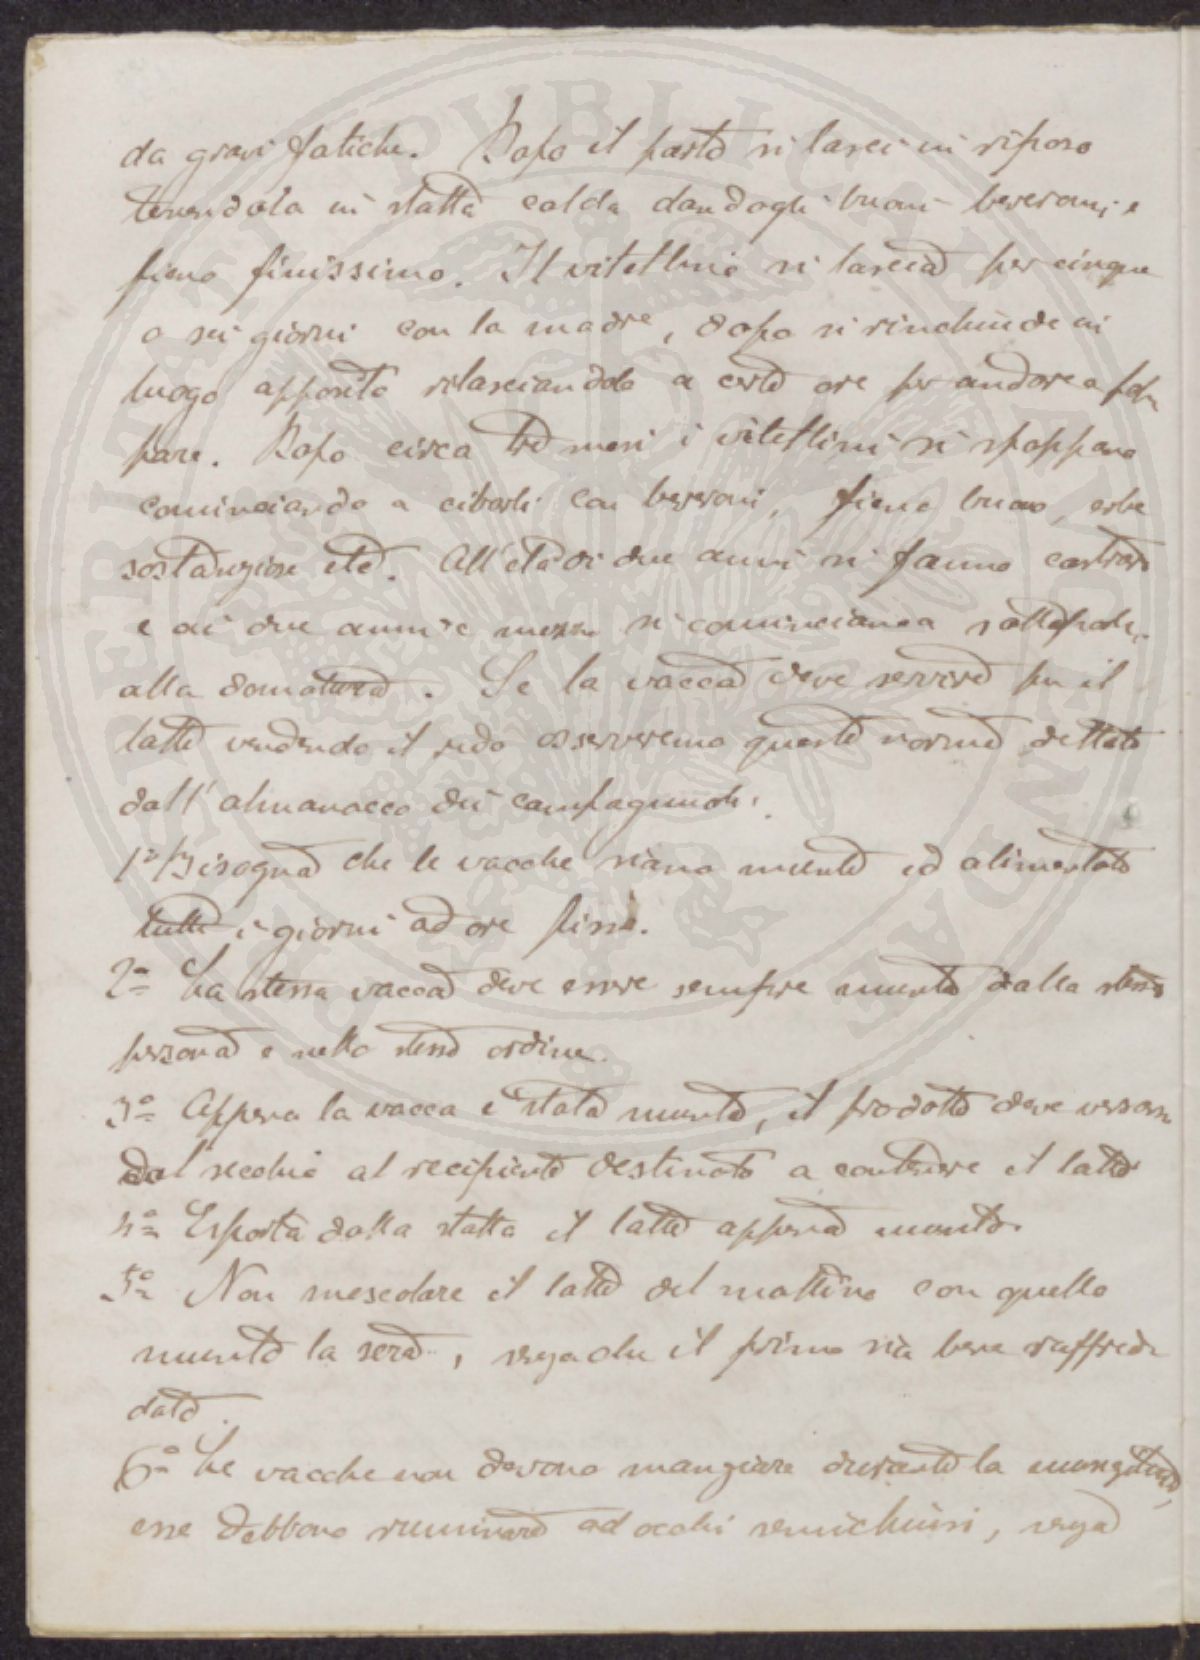 da gravi fatiche. Dopo il parto si lasci in riposo
tenendola in stalla calda dandogli buoni beveroni e
fieno finissimo. Il vitellino si lascia per cinque
o sei giorni con la madre, dopo si rinchiude in
luogo apposito rilasciandolo a certe ore per andare a pop
pare. Dopo circa tre mesi i vitellini si spoppano
cominciando a cibarli con beveroni, fieno buono, erbe
sostanziose etc. All'età di due anni si fanno castrare
e ai due anni e mezzo si cominciano a sottoporli
alla domatura. Se la vacca deve servire per il
latte vendendo il redo osserveremo queste norme dettate
dall'almanacco dei campagnuoli:
1a Bisogna che le vacche siano munte ed alimentate
tutti i giorni ad ore fisse.
2a La stessa vacca deve essere sempre munta dalla stessa
persona e nello stesso ordine.
3a Appena la vacca è stata munta, il prodotto deve versarsi
dal secchio al recipiente destinato a contenere il latte
4a Esporta dalla stalla il latte appena munto.
5a Non mescolare il latte del mattino con quello
munto la sera, senza che il primo sia bene raffred
dato.
6a Le vacche non devono mangiare durante la mungitura,
esse debbono ruminare ad occhi semichiusi, senza